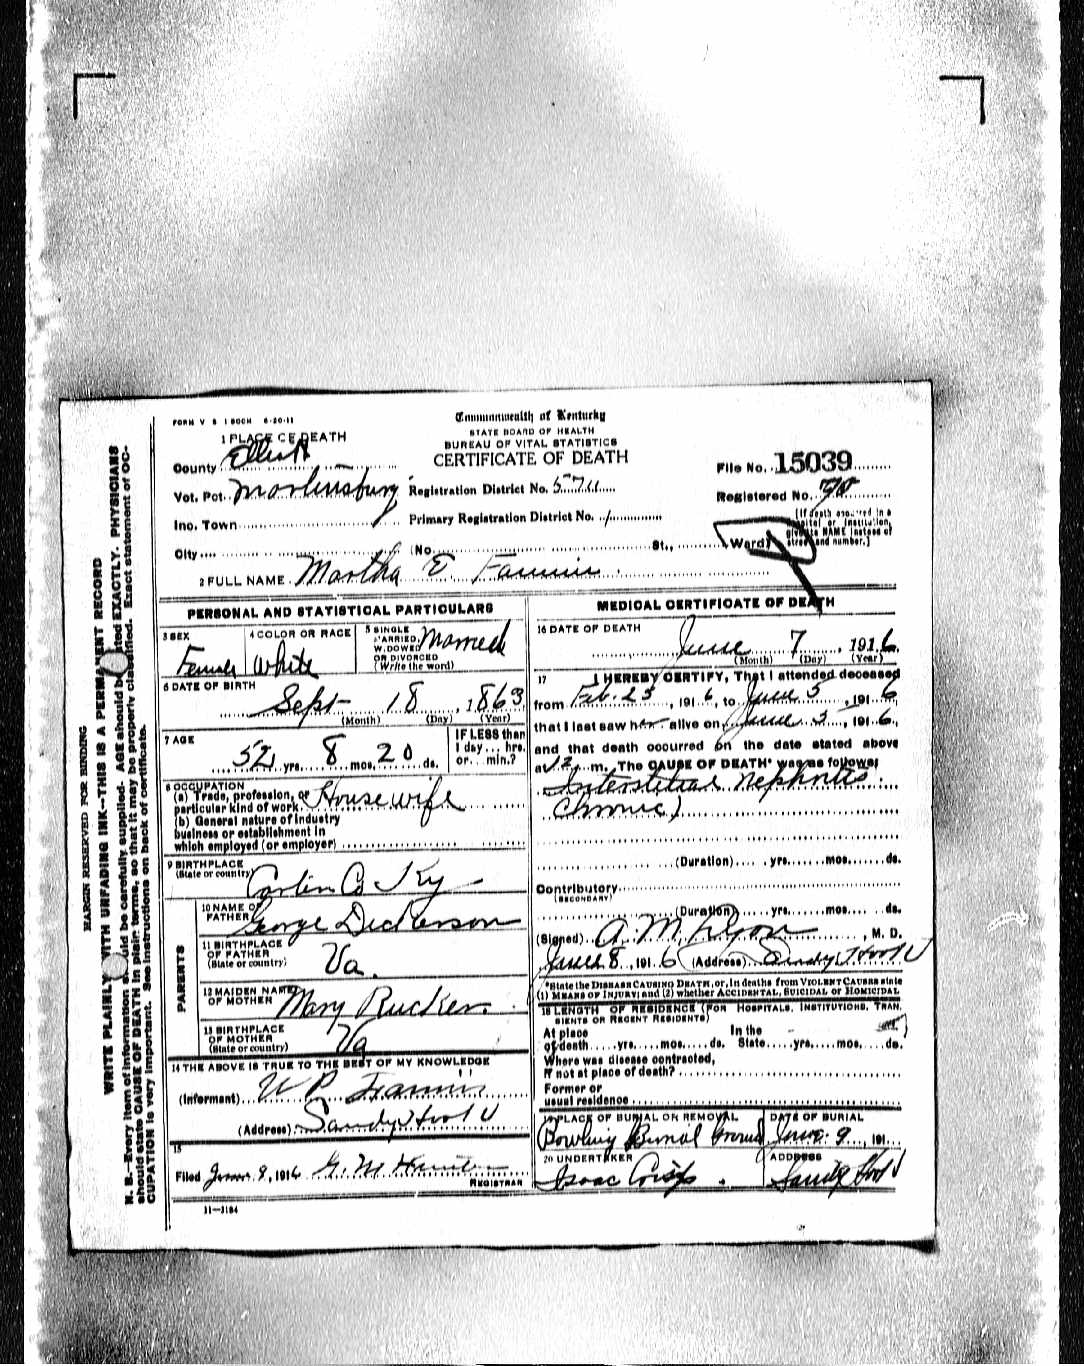 FORM V S 1 500M 6-20-11
Commonwealth of Kentucky
STATE BOARD OF HEALTH
BUREAU OF VITAL STATISTICS
CERTIFICATE OF DEATH
1 PLACE OF DEATH
County Elliott
Vot. Pct. Martinsburg
Registration District No. 5711
Inc. Town
Primary Registration District No. 1
City
(No.
St.,
Ward)
File No. 15039
Registered No.
[If death occurred in a
hospital or institution,
give its NAME instead of
street and number.]
2 FULL NAME Martha E. Fannin
PERSONAL AND STATISTICAL PARTICULARS
3 SEX
Female
4 COLOR OR RACE
White
5 SINGLE
MARRIED,
WIDOWED
OR DIVORCED
(Write the word)
Married
6 DATE OF BIRTH
Sept 18, 1863
(Month) (Day) (Year)
7 AGE
52 yrs. 8 mos. 20 ds.
IF LESS than
1 day... hrs.
or... min.?
8 OCCUPATION
(a) Trade, profession, or
particular kind of work Housewife
(b) General nature of industry
business or establishment in
which employed (or employer)
9 BIRTHPLACE
(State or country) Carter Co Ky
PARENTS
10 NAME OF
FATHER George Dickerson
11 BIRTHPLACE
OF FATHER
(State or country) Va.
12 MAIDEN NAME
OF MOTHER Mary Rucker.
13 BIRTHPLACE
OF MOTHER
(State or country) Va
14 THE ABOVE IS TRUE TO THE BEST OF MY KNOWLEDGE
(Informant) W P Fannin
(Address) Sandy Hook
15
Filed June 9, 1916 G. M.
REGISTRAR
11-3184
MEDICAL CERTIFICATE OF DEATH
16 DATE OF DEATH
June 7, 1916.
(Month) (Day) (Year)
17 I HEREBY CERTIFY, That I attended deceased
from Feb. 25, 1916, to June 5, 1916
that I last saw her alive on June 5, 1916.,
and that death occurred on the date stated above
at 12 m. The CAUSE OF DEATH* was as follows:
Interstitial Nephritis
Chronic)
(Duration) yrs. mos. ds.
Contributory
(SECONDARY)
(Duration) yrs. mos. ds.
(Signed) A. M. Lyon, M. D.
June 8, 1916 (Address) Sandy Hook
*State the DISEASE CAUSING DEATH, or, in deaths from VIOLENT CAUSES state
(1) MEANS OF INJURY; and (2) whether ACCIDENTAL, SUICIDAL or HOMICIDAL
18 LENGTH OF RESIDENCE (FOR HOSPITALS, INSTITUTIONS, TRAN-
SIENTS OR RECENT RESIDENTS)
At place
of death yrs. mos. ds.
In the
State yrs. mos. ds.
Where was disease contracted,
If not at place of death?
Former or
usual residence
19 PLACE OF BURIAL OR REMOVAL
Bowling Burial Ground
DATE OF BURIAL
June 9, 191
20 UNDERTAKER
Isaac Crisp.
ADDRESS
Sandy Hook
MARGIN RESERVED FOR BINDING
WRITE PLAINLY WITH UNFADING INK--THIS IS A PERMANENT RECORD
N. B.--Every item of information should be carefully supplied. AGE should be stated EXACTLY. PHYSICIANS
should state CAUSE OF DEATH in plain terms, so that it may be properly classified. Exact statement of OC-
CUPATION is very important. See instructions on back of certificate.